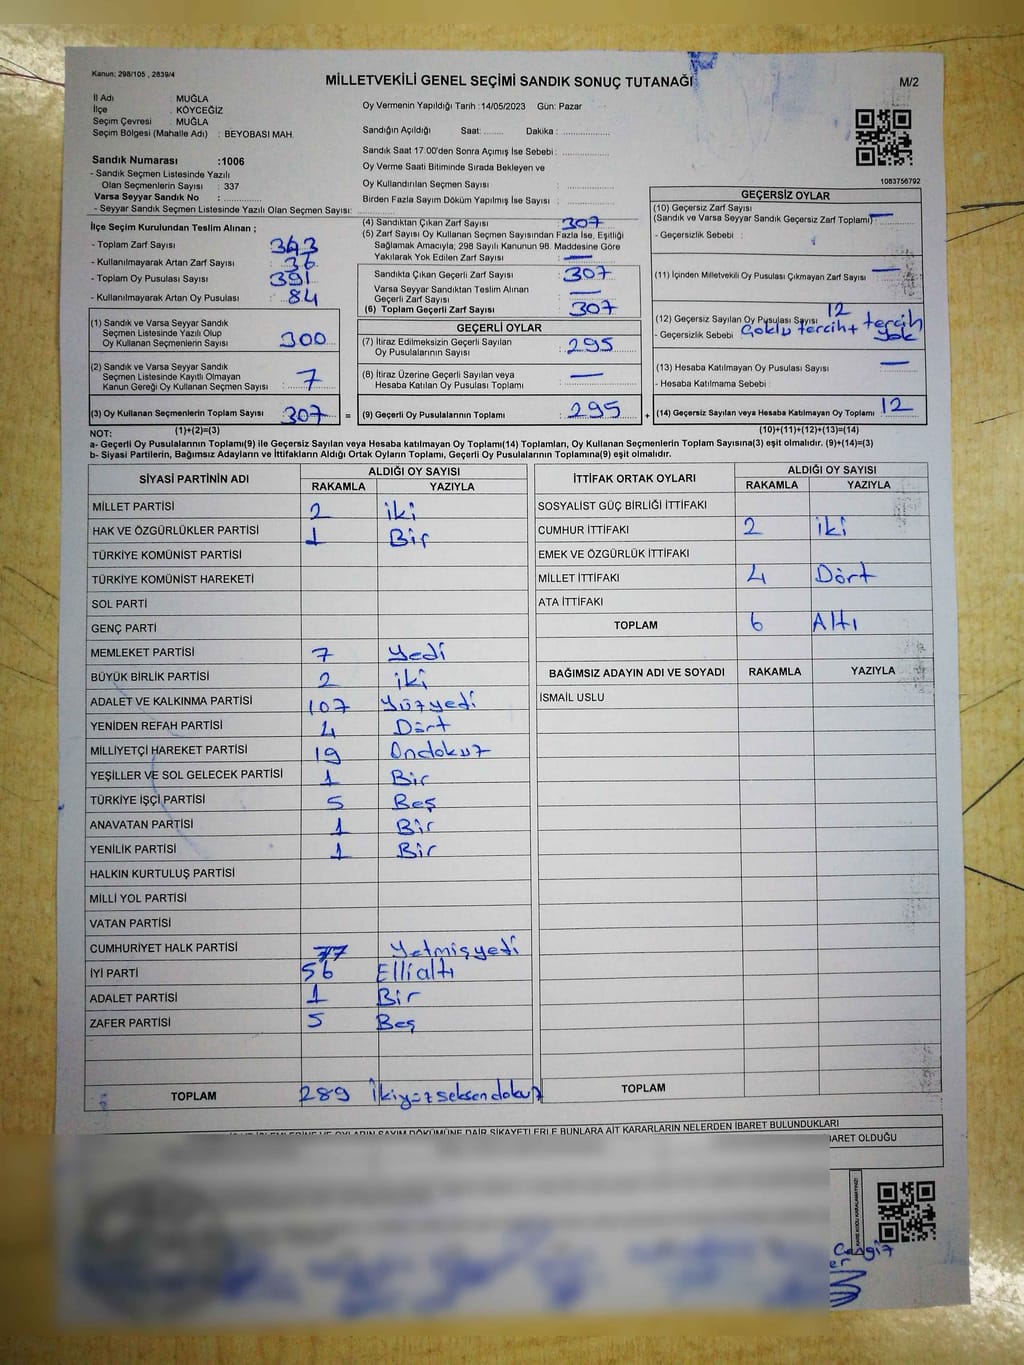 Kanun: 298/105 , 2839/4
MİLLETVEKİLİ GENEL SEÇİMİ SANDIK SONUÇ TUTANAĞI
M/2
İl Adı : MUĞLA
İlçe : KÖYCEĞİZ
Seçim Çevresi : MUĞLA
Seçim Bölgesi (Mahalle Adı) : BEYOBASI MAH.
Sandık Numarası :1006
- Sandık Seçmen Listesinde Yazılı
Olan Seçmenlerin Sayısı : 337
Varsa Seyyar Sandık No :
- Seyyar Sandık Seçmen Listesinde Yazılı Olan Seçmen Sayısı:
Oy Vermenin Yapıldığı Tarih :14/05/2023 Gün: Pazar
Sandığın Açıldığı Saat: Dakika :
Sandık Saat 17:00'den Sonra Açımış İse Sebebi :
Oy Verme Saati Bitiminde Sırada Bekleyen ve
Oy Kullandırılan Seçmen Sayısı :
Birden Fazla Sayım Döküm Yapılmış İse Sayısı :
1083756792
İlçe Seçim Kurulundan Teslim Alınan ;
- Toplam Zarf Sayısı : 343
- Kullanılmayarak Artan Zarf Sayısı : 36
- Toplam Oy Pusulası Sayısı : 391
- Kullanılmayarak Artan Oy Pusulası : 84
(1) Sandık ve Varsa Seyyar Sandık
Seçmen Listesinde Yazılı Olup
Oy Kullanan Seçmenlerin Sayısı : 300
(2) Sandık ve Varsa Seyyar Sandık
Seçmen Listesinde Kayıtlı Olmayan
Kanun Gereği Oy Kullanan Seçmen Sayısı : 7
(3) Oy Kullanan Seçmenlerin Toplam Sayısı : 307
(1)+(2)=(3)
(4) Sandıktan Çıkan Zarf Sayısı : 307
(5) Zarf Sayısı Oy Kullanan Seçmen Sayısından Fazla İse, Eşitliği
Sağlamak Amacıyla; 298 Sayılı Kanunun 98. Maddesine Göre
Yakılarak Yok Edilen Zarf Sayısı : —
Sandıkta Çıkan Geçerli Zarf Sayısı : 307
Varsa Seyyar Sandıktan Teslim Alınan
Geçerli Zarf Sayısı : —
(6) Toplam Geçerli Zarf Sayısı : 307
GEÇERLİ OYLAR
(7) İtiraz Edilmeksizin Geçerli Sayılan
Oy Pusulalarının Sayısı : 295
(8) İtiraz Üzerine Geçerli Sayılan veya
Hesaba Katılan Oy Pusulası Toplamı : —
= (9) Geçerli Oy Pusulalarının Toplamı : 295
GEÇERSİZ OYLAR
(10) Geçersiz Zarf Sayısı
(Sandık ve Varsa Seyyar Sandık Geçersiz Zarf Toplamı) —
- Geçersizlik Sebebi :
(11) İçinden Milletvekili Oy Pusulası Çıkmayan Zarf Sayısı : —
(12) Geçersiz Sayılan Oy Pusulası Sayısı : 12
- Geçersizlik Sebebi Çoklu tercih + tercih
yok
(13) Hesaba Katılmayan Oy Pusulası Sayısı : —
- Hesaba Katılmama Sebebi :
+ (14) Geçersiz Sayılan veya Hesaba Katılmayan Oy Toplamı : 12
(10)+(11)+(12)+(13)=(14)
NOT:
a- Geçerli Oy Pusulalarının Toplamı(9) ile Geçersiz Sayılan veya Hesaba katılmayan Oy Toplamı(14) Toplamları, Oy Kullanan Seçmenlerin Toplam Sayısına(3) eşit olmalıdır. (9)+(14)=(3)
b- Siyasi Partilerin, Bağımsız Adayların ve İttifakların Aldığı Ortak Oyların Toplamı, Geçerli Oy Pusulalarının Toplamına(9) eşit olmalıdır.
SİYASİ PARTİNİN ADI ALDIĞI OY SAYISI
RAKAMLA YAZIYLA
MİLLET PARTİSİ 2 iki
HAK VE ÖZGÜRLÜKLER PARTİSİ 1 Bir
TÜRKİYE KOMÜNİST PARTİSİ
TÜRKİYE KOMÜNİST HAREKETİ
SOL PARTİ
GENÇ PARTİ
MEMLEKET PARTİSİ 7 Yedi
BÜYÜK BİRLİK PARTİSİ 2 iki
ADALET VE KALKINMA PARTİSİ 107 Yüzyedi
YENİDEN REFAH PARTİSİ 4 Dört
MİLLİYETÇİ HAREKET PARTİSİ 19 Ondokuz
YEŞİLLER VE SOL GELECEK PARTİSİ 1 Bir
TÜRKİYE İŞÇİ PARTİSİ 5 Beş
ANAVATAN PARTİSİ 1 Bir
YENİLİK PARTİSİ 1 Bir
HALKIN KURTULUŞ PARTİSİ
MİLLİ YOL PARTİSİ
VATAN PARTİSİ
CUMHURİYET HALK PARTİSİ 77 Yetmişyedi
İYİ PARTİ 56 Ellialtı
ADALET PARTİSİ 1 Bir
ZAFER PARTİSİ 5 Beş
TOPLAM 289 İkiyüzseksendokuz
İTTİFAK ORTAK OYLARI ALDIĞI OY SAYISI
RAKAMLA YAZIYLA
SOSYALİST GÜÇ BİRLİĞİ İTTİFAKI
CUMHUR İTTİFAKI 2 iki
EMEK VE ÖZGÜRLÜK İTTİFAKI
MİLLET İTTİFAKI 4 Dört
ATA İTTİFAKI
TOPLAM 6 Altı
BAĞIMSIZ ADAYIN ADI VE SOYADI RAKAMLA YAZIYLA
İSMAİL USLU
TOPLAM
OYLARIN SAYIM DÖKÜMÜNE DAİR ŞİKAYETLERLE BUNLARA AİT KARARLARIN NELERDEN İBARET BULUNDUKLARI
İBARET OLDUĞU
Cengiz